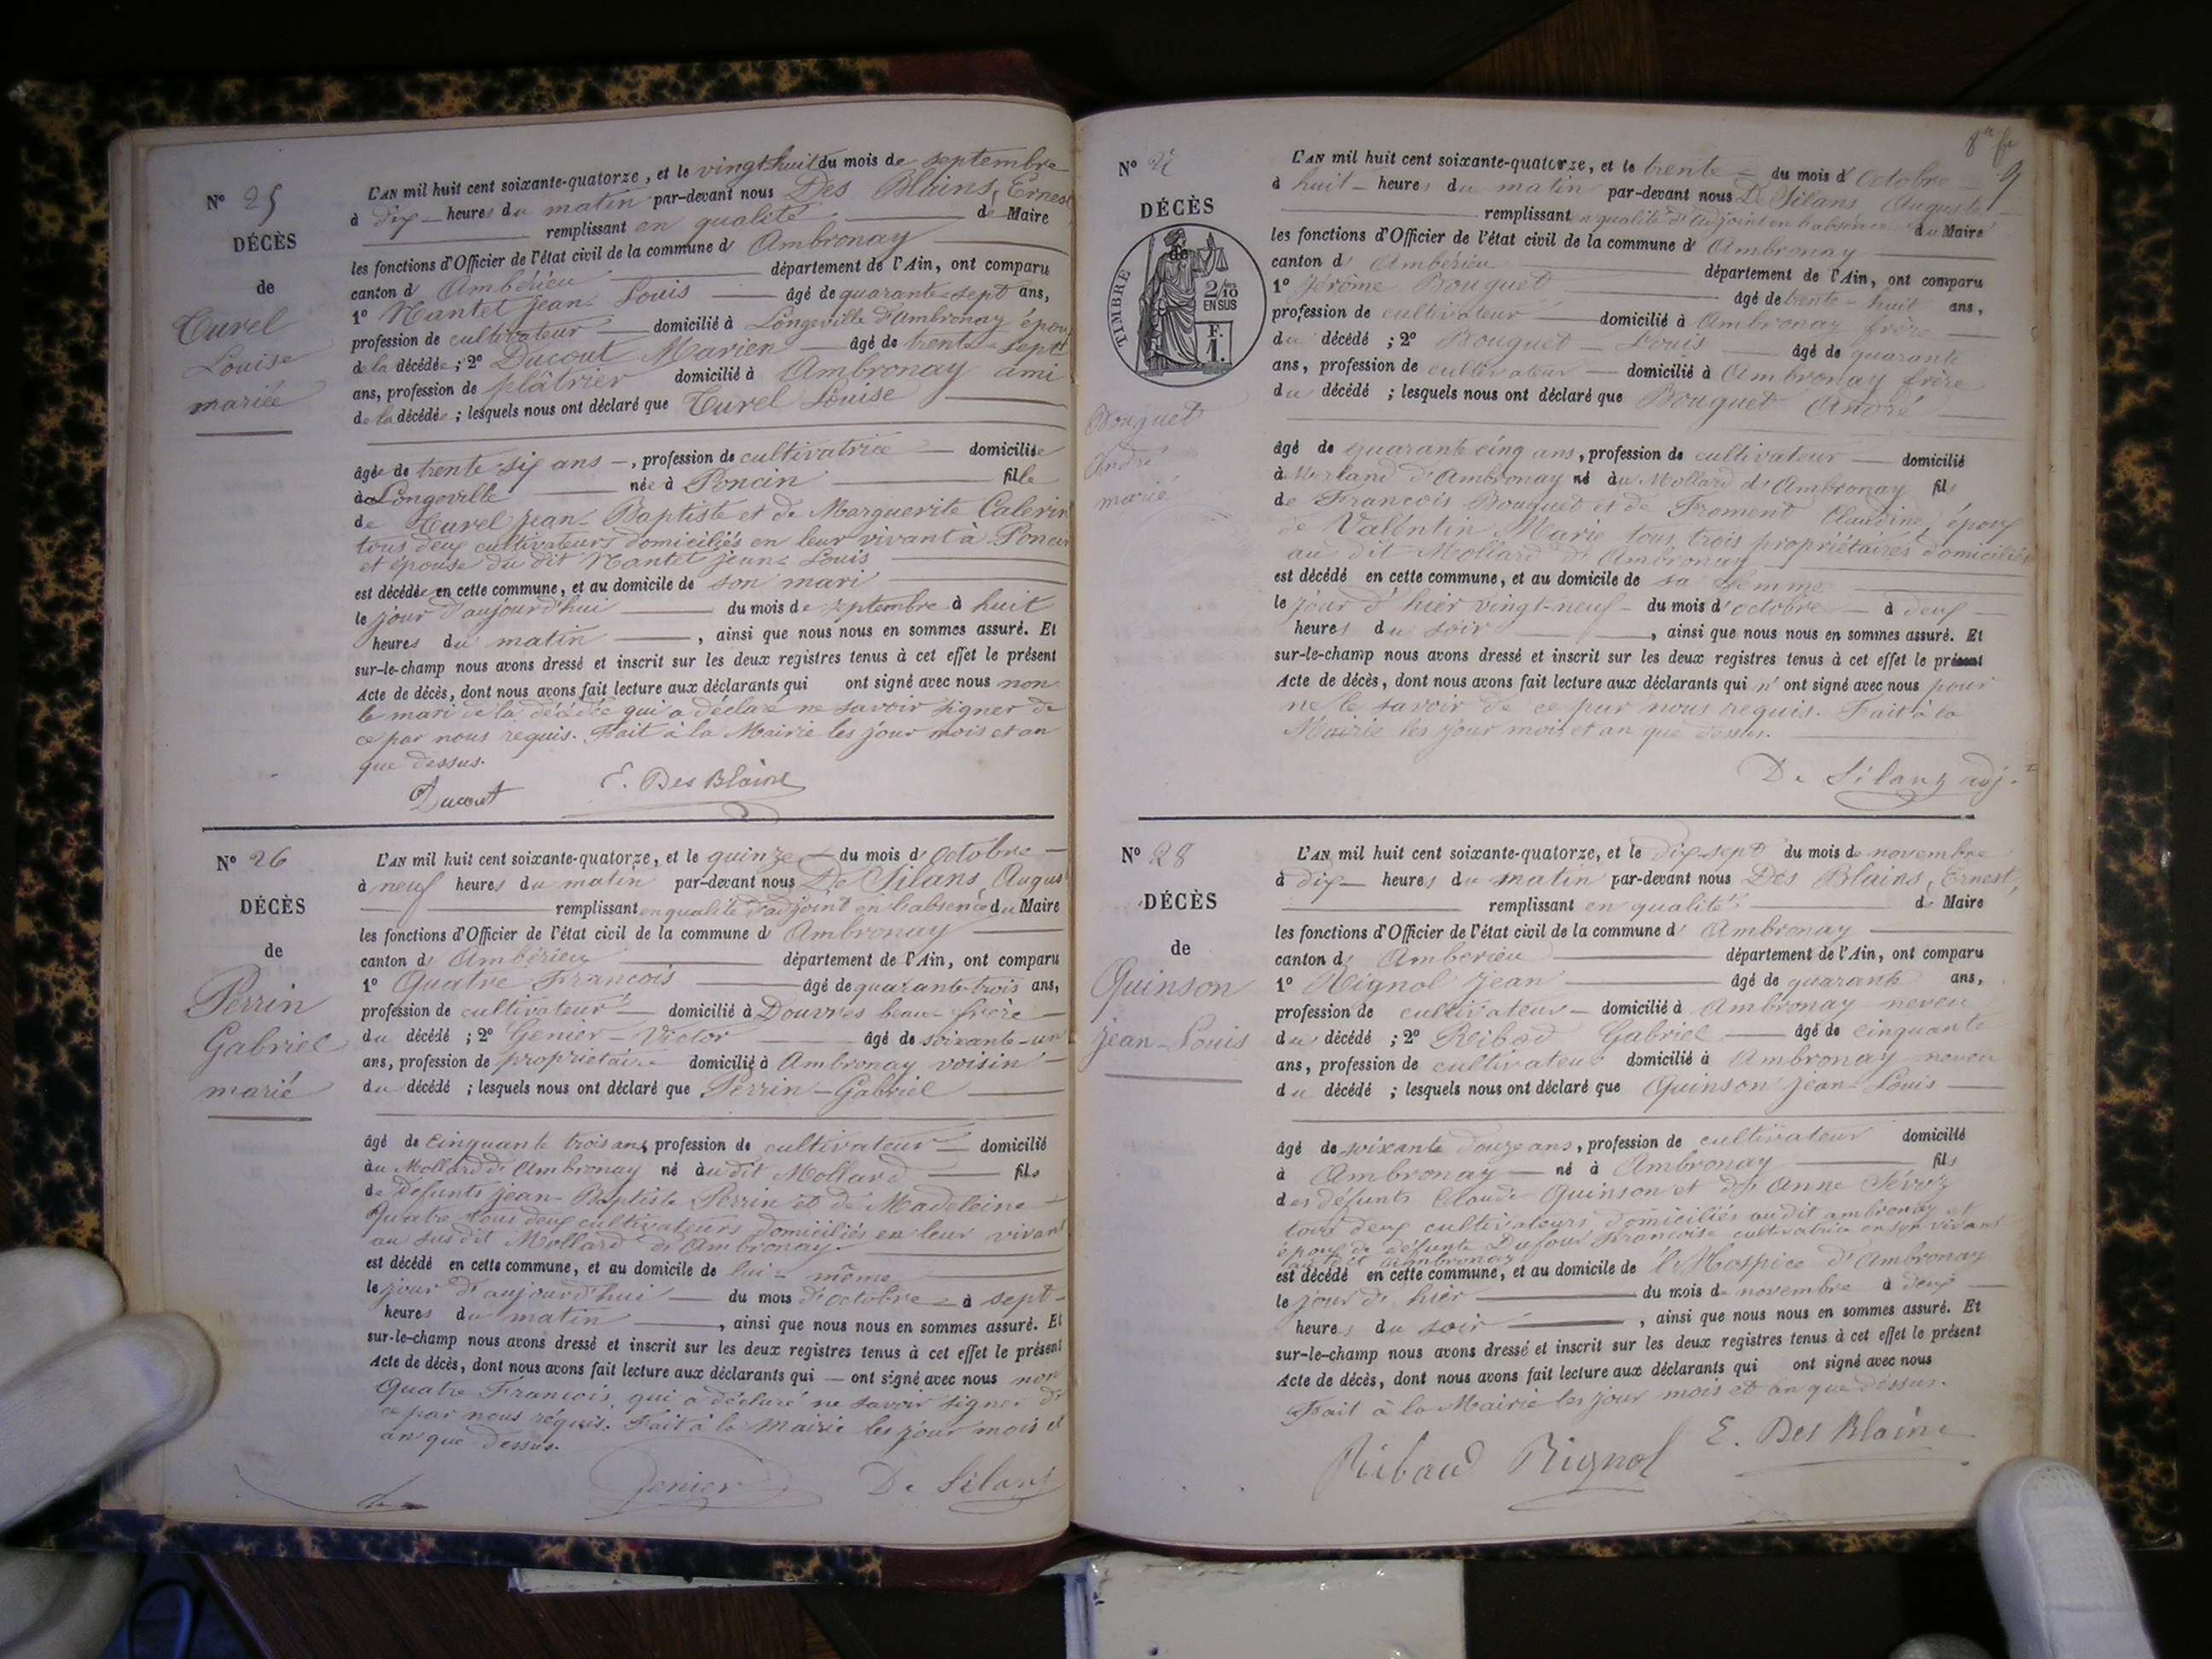 N° 25
DÉCÈS
de
Turel
Louise
mariée
L'AN mil huit cent soixante-quatorze, et le vingt-huit du mois de septembre
à dix heures du matin par-devant nous Des Blains, Ernest
remplissant en qualité de Maire
les fonctions d'Officier de l'état civil de la commune d'Ambronay
canton d'Ambérieu département de l'Ain, ont comparu
1° Nantet jean-Louis âgé de quarante-sept ans,
profession de cultivateur domicilié à Longeville d'Ambronay époux
de la décédée ; 2° Ducout Marien âgé de trente-sept
ans, profession de plâtrier domicilié à Ambronay ami
de la décédée ; lesquels nous ont déclaré que Turel Louise
âgée de trente-six ans, profession de cultivatrice domiciliée
à Longeville née à Poncin fille
de Turel jean-Baptiste et de Marguerite Calerin
tous deux cultivateurs domiciliés en leur vivant à Poncin
et épouse du dit Nantet jean-Louis
est décédée en cette commune, et au domicile de son mari
le jour d'aujourd'hui du mois de septembre à huit
heures du matin, ainsi que nous nous en sommes assuré. Et
sur-le-champ nous avons dressé et inscrit sur les deux registres tenus à cet effet le présent
Acte de décès, dont nous avons fait lecture aux déclarants qui ont signé avec nous non
le mari de la décédée qui a déclaré ne savoir signer de
ce par nous requis. Fait à la Mairie les jour mois et an
que dessus.
Ducout E. Des Blains
N° 26
DÉCÈS
de
Perrin
Gabriel
marié
L'AN mil huit cent soixante-quatorze, et le quinze du mois d'octobre
à neuf heures du matin par-devant nous De Silans, Augus
remplissant en qualité d'adjoint en l'absence du Maire
les fonctions d'Officier de l'état civil de la commune d'Ambronay
canton d'Ambérieu département de l'Ain, ont comparu
1° Quatre François âgé de quarante-trois ans,
profession de cultivateur domicilié à Douvres beau-frère
du décédé ; 2° Genier-Victor âgé de soixante-un
ans, profession de propriétaire domicilié à Ambronay voisin
du décédé ; lesquels nous ont déclaré que Perrin-Gabriel
âgé de cinquante trois ans, profession de cultivateur domicilié
au Mollard d'Ambronay né au dit Mollard fils
de défunts jean-Baptiste Perrin et de Madeleine
Quatre tous deux cultivateurs domiciliés en leur vivant
au susdit Mollard d'Ambronay.
est décédé en cette commune, et au domicile de lui-même
le jour d'aujourd'hui du mois d'octobre à sept
heures du matin, ainsi que nous nous en sommes assuré. Et
sur-le-champ nous avons dressé et inscrit sur les deux registres tenus à cet effet le présent
Acte de décès, dont nous avons fait lecture aux déclarants qui ont signé avec nous non
Quatre François, qui a déclaré ne savoir signer de
ce par nous requis. Fait à la Mairie les jour mois et
an que dessus.
Genier De Silans
9
N°
DÉCÈS
de
TIMBRE
2/10
EN SUS
F.
1.
Bouguet
André
marié
L'AN mil huit cent soixante-quatorze, et le trente du mois d'octobre
à huit heures du matin par-devant nous De Silans Auguste
remplissant en qualité d'adjoint en l'absence du Maire
les fonctions d'Officier de l'état civil de la commune d'Ambronay
canton d'Ambérieu département de l'Ain, ont comparu
1° jérôme Bouguet âgé de trente-huit ans,
profession de cultivateur domicilié à Ambronay frère
du décédé ; 2° Bouguet-Louis âgé de quarante
ans, profession de cultivateur domicilié à Ambronay frère
du décédé ; lesquels nous ont déclaré que Bouguet André
âgé de quarante cinq ans, profession de cultivateur domicilié
à Merland d'Ambronay né au Mollard d'Ambronay fils
de François Bouguet et de Froment Claudine, époux
de Valentin Marie tous trois propriétaires domiciliés
au dit Mollard d'Ambronay
est décédé en cette commune, et au domicile de sa femme
le jour d'hier vingt-neuf du mois d'octobre à deux
heures du soir, ainsi que nous nous en sommes assuré. Et
sur-le-champ nous avons dressé et inscrit sur les deux registres tenus à cet effet le présent
Acte de décès, dont nous avons fait lecture aux déclarants qui n'ont signé avec nous pour
ne le savoir de ce par nous requis. Fait à la
Mairie les jour mois et an que dessus.
De Silans adj.
N° 28
DÉCÈS
de
Quinson
jean-Louis
L'AN mil huit cent soixante-quatorze, et le dix-sept du mois de novembre
à dix heures du matin par-devant nous Des Blains, Ernest,
remplissant en qualité de Maire
les fonctions d'Officier de l'état civil de la commune d'Ambronay
canton d'Ambérieu département de l'Ain, ont comparu
1° Rignol jean âgé de quarante ans,
profession de cultivateur domicilié à Ambronay neveu
du décédé ; 2° Reibod Gabriel âgé de cinquante
ans, profession de cultivateur domicilié à Ambronay neveu
du décédé ; lesquels nous ont déclaré que Quinson jean-Louis
âgé de soixante douze ans, profession de cultivateur domicilié
à Ambronay né à Ambronay fils
des défunts Claude Quinson et d' Anne
tous deux cultivateurs domiciliés audit ambronay et
époux de défunte Dufour Françoise cultivatrice en son vivant
audit Ambronay
est décédé en cette commune, et au domicile de l'Hospice d'Ambronay
le jour d'hier du mois de novembre à deux
heures du soir, ainsi que nous nous en sommes assuré. Et
sur-le-champ nous avons dressé et inscrit sur les deux registres tenus à cet effet le présent
Acte de décès, dont nous avons fait lecture aux déclarants qui ont signé avec nous
Fait à la Mairie les jour mois et an que dessus.
Ribaud Rignol E. Des Blains